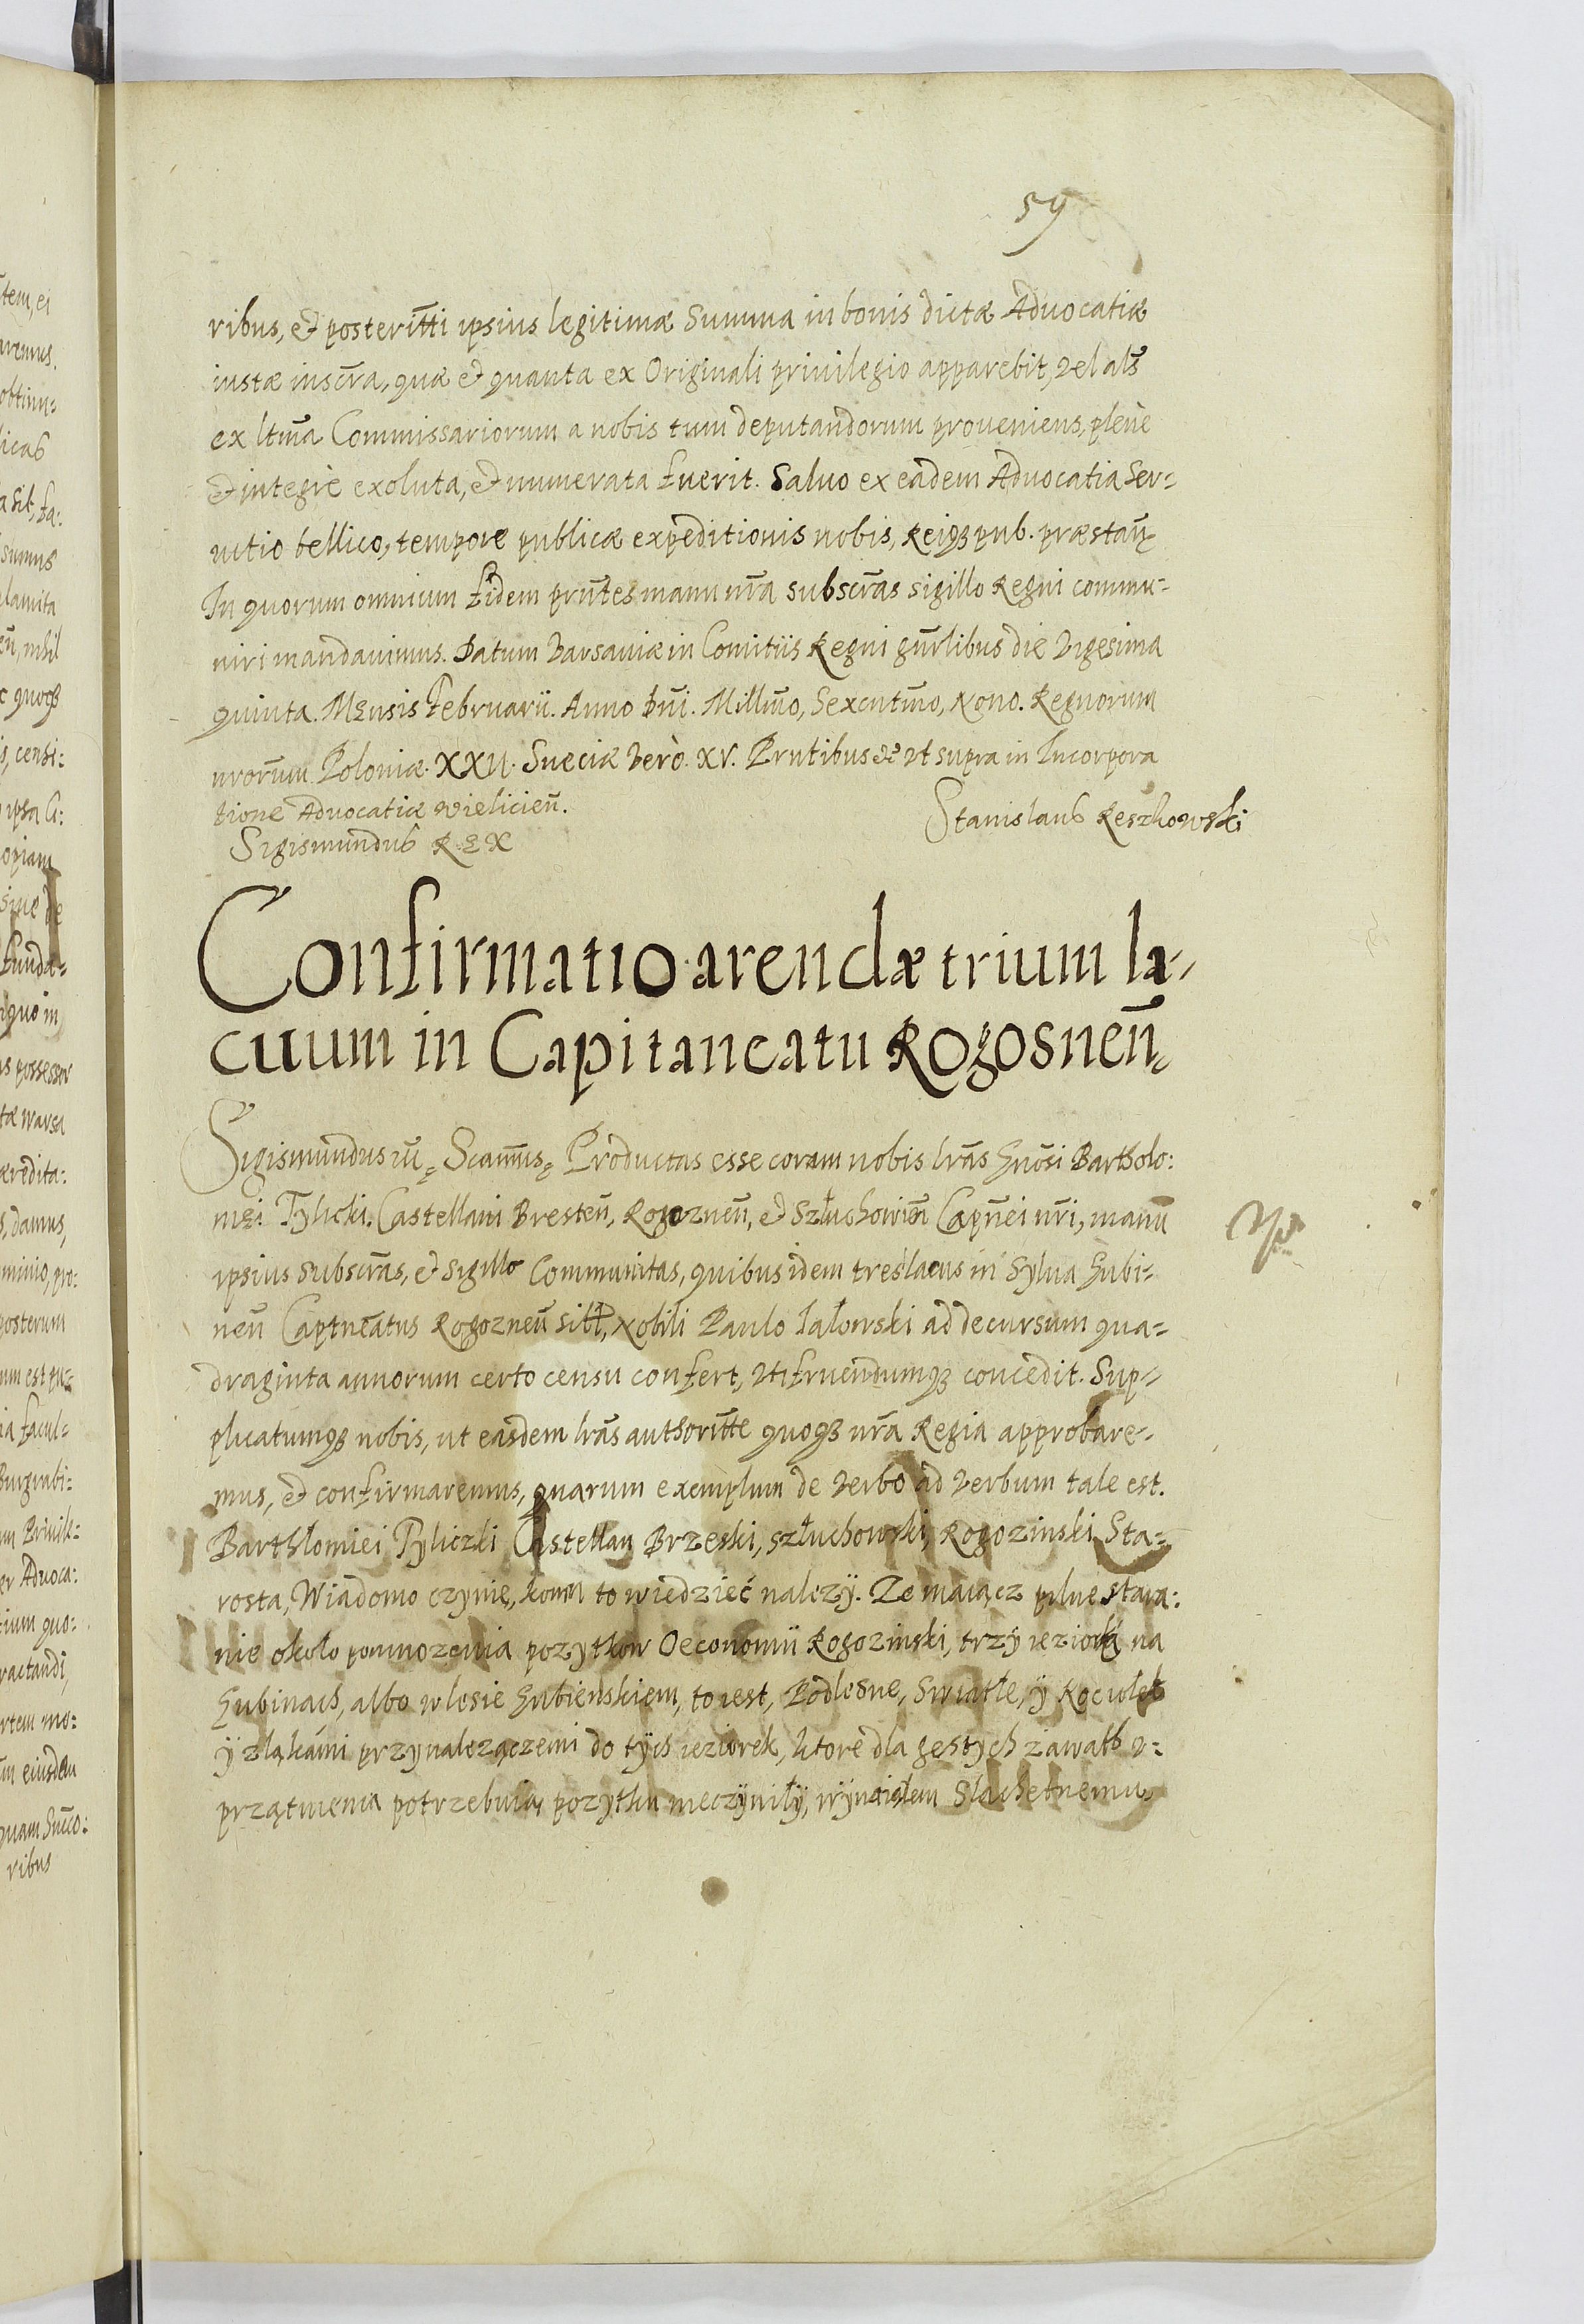 59
ribus, et posteritti ipsius legitimæ Summa in bonis dictæ Advocatiæ
iustæ inscra, quæ et quanta ex Originali privilegio apparebit, vel als
ex ltma Commissariorum a nobis tum deputandorum proveniens, plenè
et integrè exoluta, et numerata fuerit. Salvo ex eadem Advocatia Ser-
vitio bellico, tempore publicæ expeditionis nobis, Reiq3 pub. præstan
In quorum omnium fidem prntes manu nra subscras sigillo Regni commu-
niri mandavimus. Datum Varsaviæ in Comitiis Regni gnrlibus die Vigesima
quinta Mensis Februarii. Anno Dni. Millmo, Sexcntmo, Nono. Regnorum
nrorum Poloniæ XXII. Sueciæ Verò. XV. Prntibus etc ut supra in Incorpora
tione Advocatiæ Wielicien.
Stanislaus Reszkowski
Sigismundus REX
Confirmatio arendæ trium la-
cuum in Capitaneatu Rogosnen
Sigismundus iii Scamus Productas esse coram nobis lras Gnosi Bartholo:
mei Tylicki. Castellani Bresten, Rogoznen, et Szluchowien Capnei nri, manu
ipsius subscras, et sigillo Communitas, quibus idem tres lacus in Sylva Hubi-
nen Captneatus Rogoznen sitt, Nobili Paulo Ialowski ad decursum qua-
draginta annorum certo censu confert, utifruendumq3 concedit. Sup-
plicatumq3 nobis, ut easdem lras authoritte quoq3 nra Regia approbare-
mus, et confirmaremus, quarum exemplum de verbo ad verbum tale est.
Barthlomiei Tyliczki Castellan Brzeski, szluchowski, Rogozinski Sta-
rosta, Wiadomo czynię, komu to wiedzieć nalezÿ. Ze maiącz pilne stara:
nie około pomnozenia pozytkow Oeconomii Rogozinski, trzÿ ieziorka na
Hubinach, albo w lesie Hubienskiem, to iest, Podlesne, Swiatłe, ÿ Kociołek
ÿ z ląkami przynalezączemi do tÿch ieziorek, ktore dla gestych zawałb u-
prząthienia potrzebuią pozytku nieczÿniłÿ, wÿnaiąłem Slachetnemu
tem, ei
obtinu-
licas
sumus
nihil
quoq3
censi:
ipsa
opiam
sive de
funda-
quo in
possessor
Warsa
ædita:
damus,
pro:
posterum
um est
facul-
Privile:
Advoca:
quo:
ractandi,
mo:
eiusdem
quam Succo:
ribus